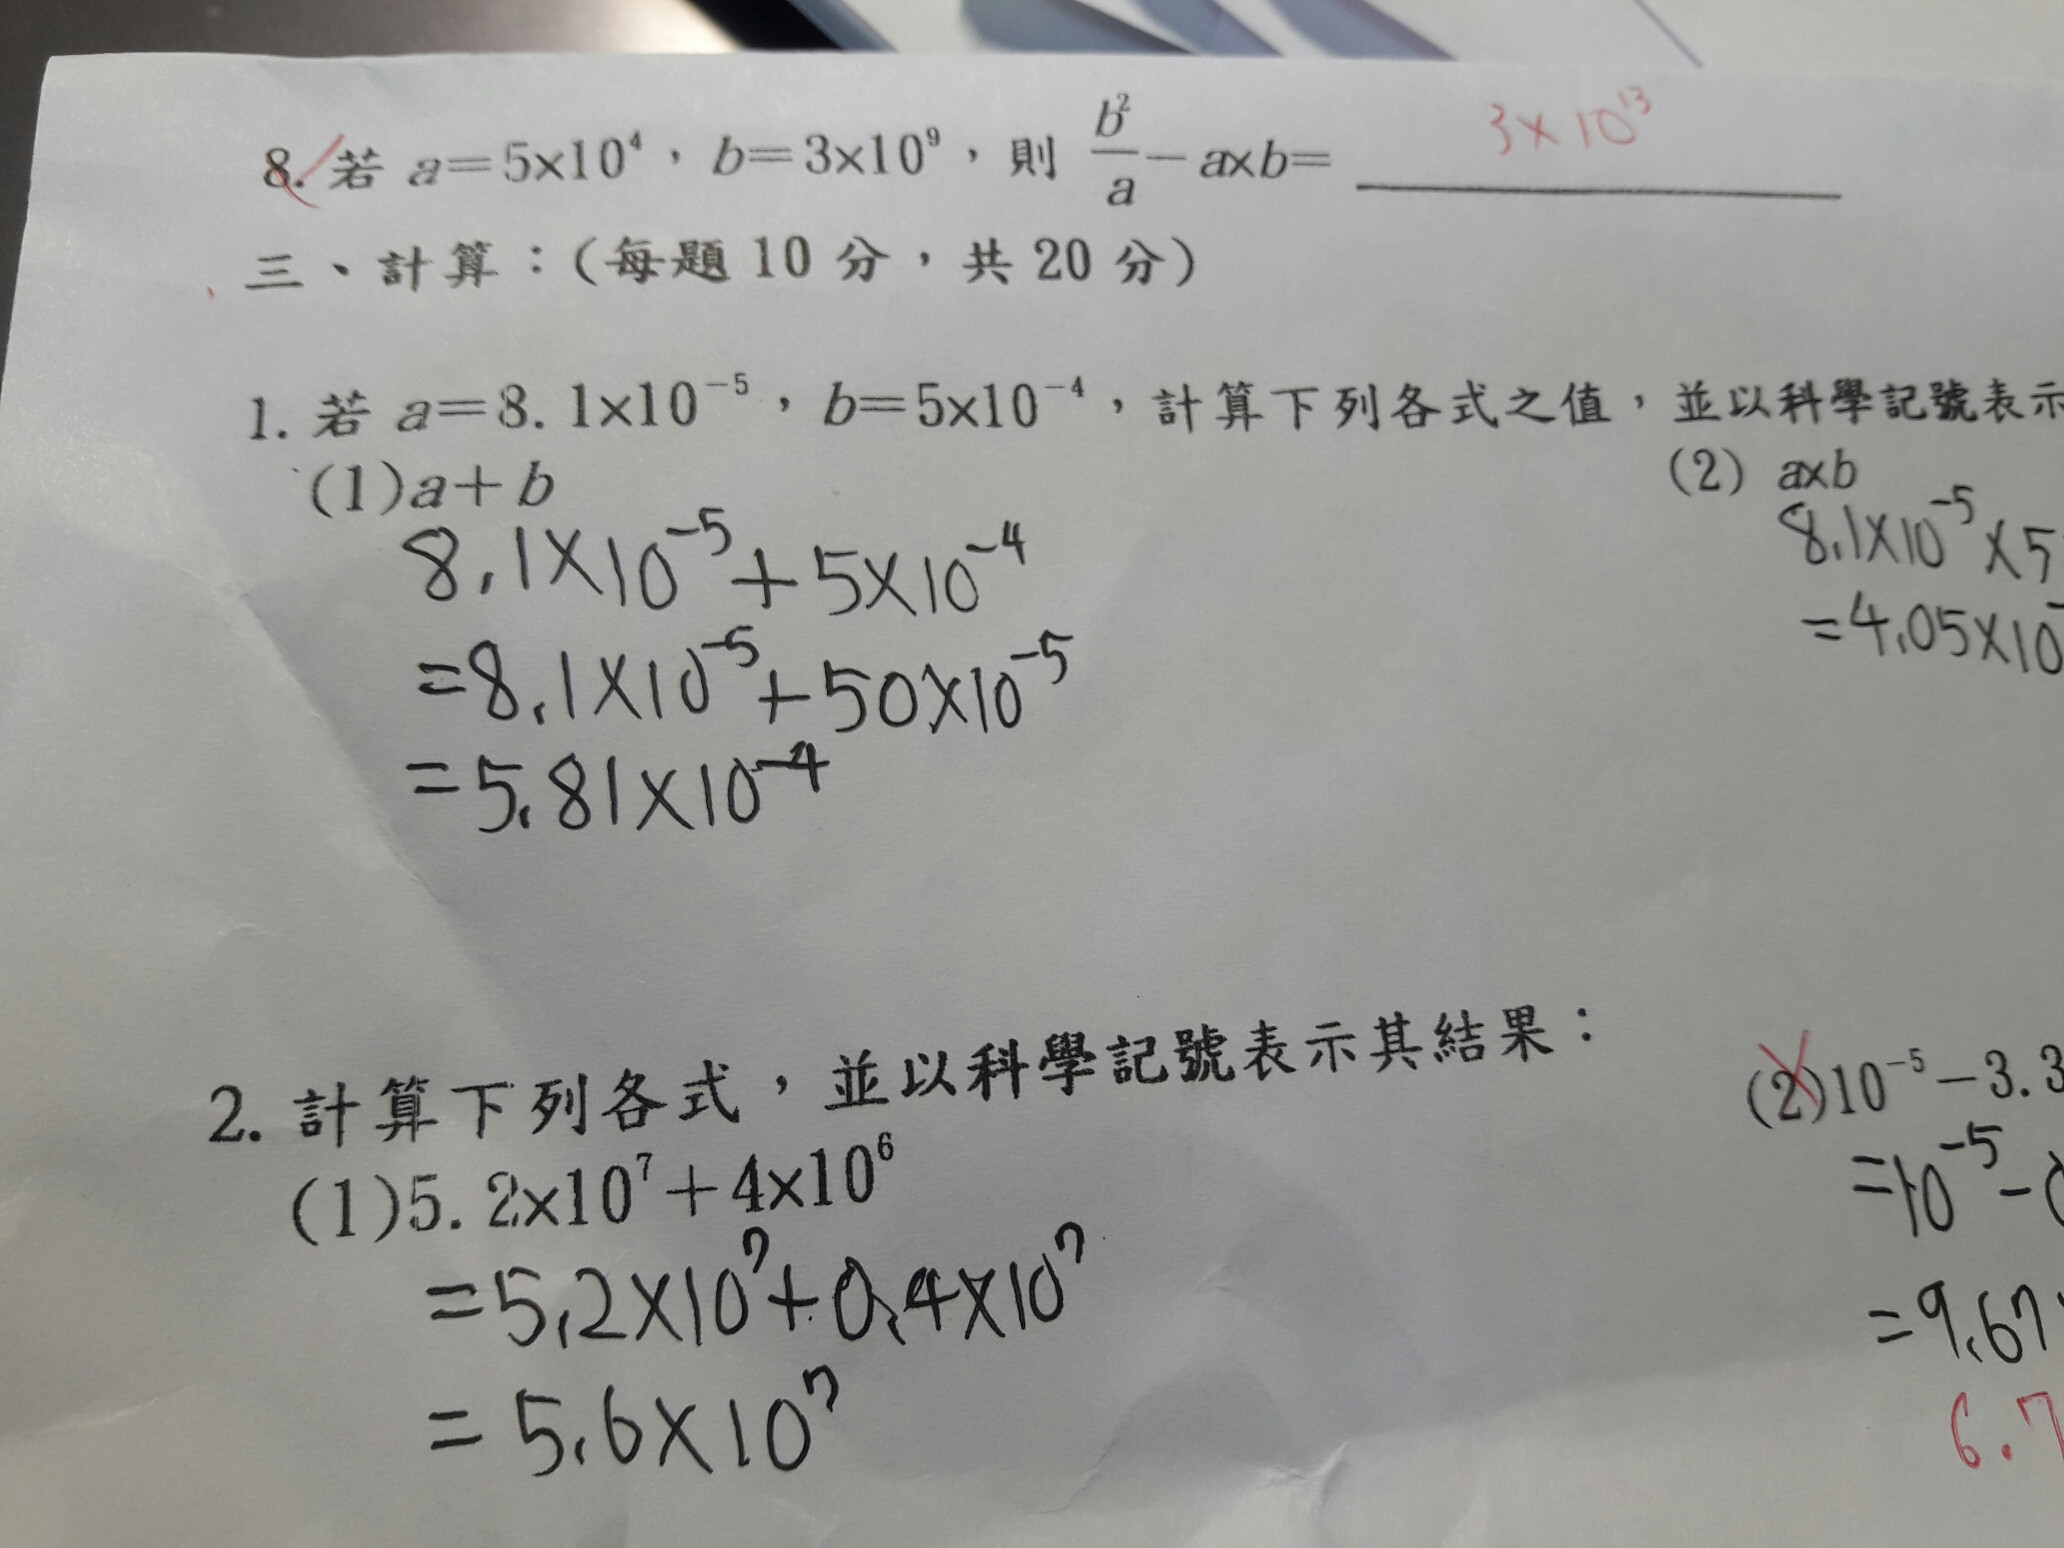 8. 若 a=5×10⁴，b=3×10⁹，則 b²/a－a×b= 3×10¹³
三、計算：(每題 10 分，共 20 分)
1. 若 a=8.1×10⁻⁵，b=5×10⁻⁴，計算下列各式之值，並以科學記號表示
(1)a＋b
8.1×10⁻⁵+5×10⁻⁴
=8.1×10⁻⁵+50×10⁻⁵
=5.81×10⁻⁴
(2) a×b
8.1×10⁻⁵×5
=4.05×10⁻
2. 計算下列各式，並以科學記號表示其結果：
(1)5.2×10⁷＋4×10⁶
=5.2×10⁷+0.4×10⁷
=5.6×10⁷
(2)10⁻⁵－3.3
=10⁻⁵-0
=9.67
6.7